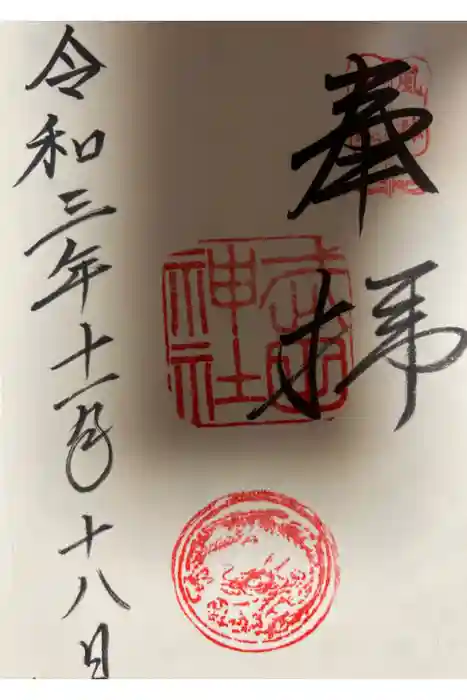 奉拝
神社
令和三年十一月十八日